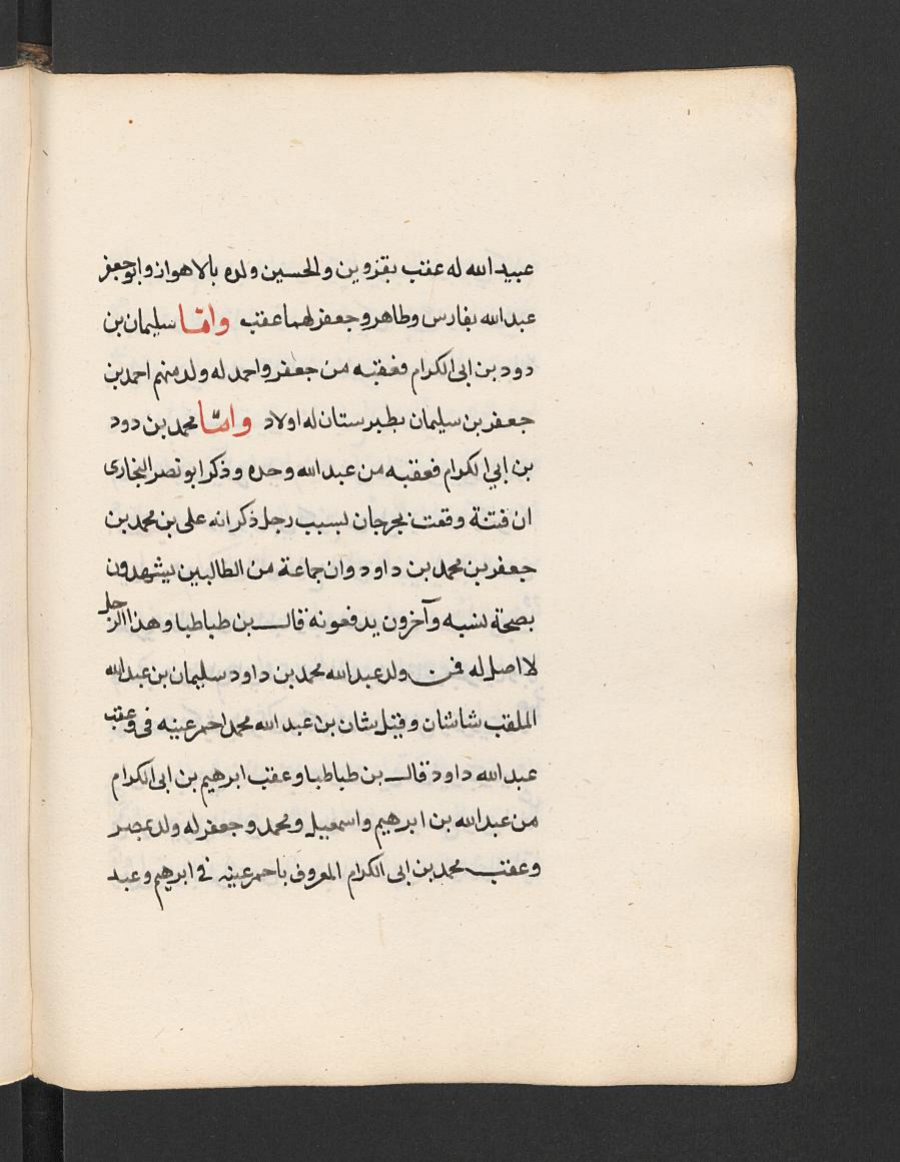 عبيد الله له عقب بقزوين والحسين ولده بالاهواز وابوجعفر
عبد الله بفارس وطاهر وجعفر لهما عقب وامّا سليمان بن
دود بن ابى الكرام فعقبه من جعفر واحمد له ولد منهم احمد بن
جعفر بن سليمان بطبرستان له اولاد وامّا محمد بن دود
بن ابي الكرام فعقبه من عبد الله وحده وذكر ابو نصر البخارى
ان فتنة وقعت بجرجان لسبب رجل ذكر انه على بن محمد بن
جعفر بن محمد بن داود وان جماعة من الطالبين يشهدون
بصحة نسبه وآخرون يدفعونه قال بن طباطبا وهذا الرجل
لا اصل له فمن ولد عبد الله محمد بن داود سليمان بن عبد الله
الملقب شاشان وقيل شان بن عبد الله محمد احمر عينه فى وعقب
عبد الله داود قال بن طباطبا وعقب ابرهيم بن ابى الكرام
من عبد الله بن ابرهيم واسمعيل ومحمد وجعفر له ولد بمصر
وعقب محمد بن ابى الكرام المعروف باحمر عينه فى ابرهيم وعبد